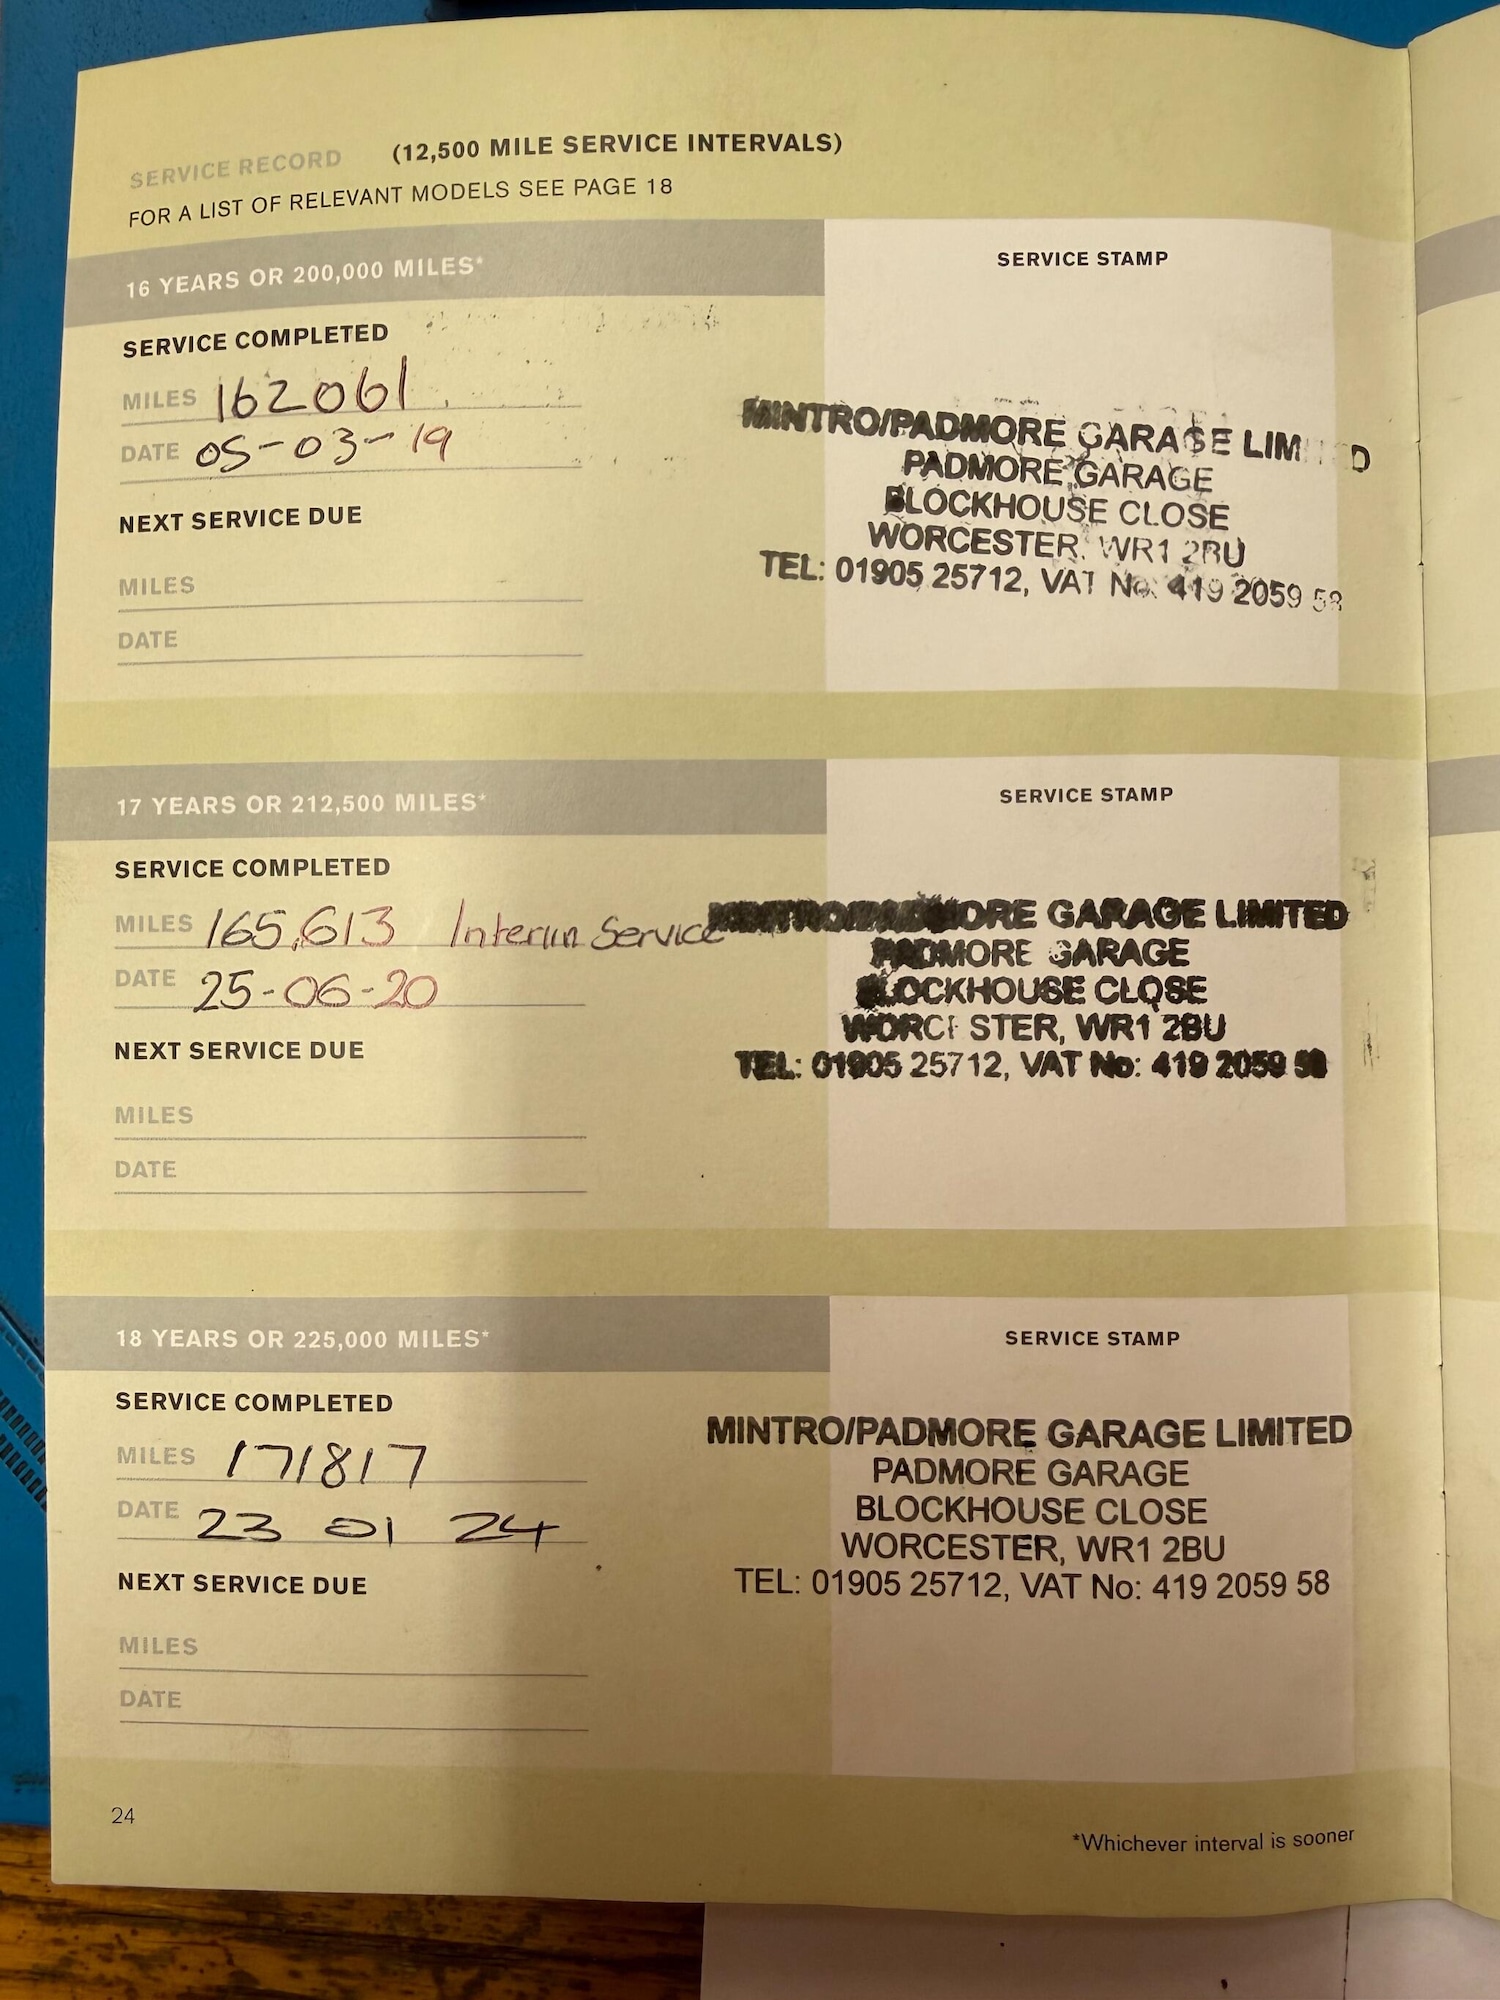 SERVICE RECORD (12,500 MILE SERVICE INTERVALS)
FOR A LIST OF RELEVANT MODELS SEE PAGE 18
16 YEARS OR 200,000 MILES*
SERVICE COMPLETED
MILES 162061
DATE 05-03-19
NEXT SERVICE DUE
MILES
DATE
SERVICE STAMP
MINTRO/PADMORE GARAGE LIMITED
PADMORE GARAGE
BLOCKHOUSE CLOSE
WORCESTER, WR1 2BU
TEL: 01905 25712, VAT No: 419 2059 58
17 YEARS OR 212,500 MILES*
SERVICE COMPLETED
MILES 165,613 Interim Service
DATE 25-06-20
NEXT SERVICE DUE
MILES
DATE
SERVICE STAMP
MINTRO/PADMORE GARAGE LIMITED
PADMORE GARAGE
BLOCKHOUSE CLOSE
WORCESTER, WR1 2BU
TEL: 01905 25712, VAT No: 419 2059 58
18 YEARS OR 225,000 MILES*
SERVICE COMPLETED
MILES 171817
DATE 23 01 24
NEXT SERVICE DUE
MILES
DATE
SERVICE STAMP
MINTRO/PADMORE GARAGE LIMITED
PADMORE GARAGE
BLOCKHOUSE CLOSE
WORCESTER, WR1 2BU
TEL: 01905 25712, VAT No: 419 2059 58
24
*Whichever interval is sooner